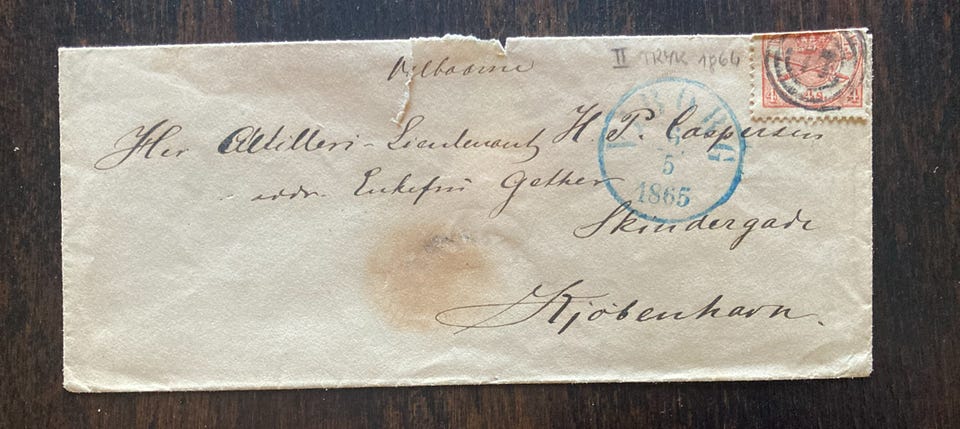 Velbaarne
II TRYK 1864
Hr Artilleri-Lieutenant H. P. Caspersen
addr. Enkefru Gether
Skindergade
Kjøbenhavn.
5
1865